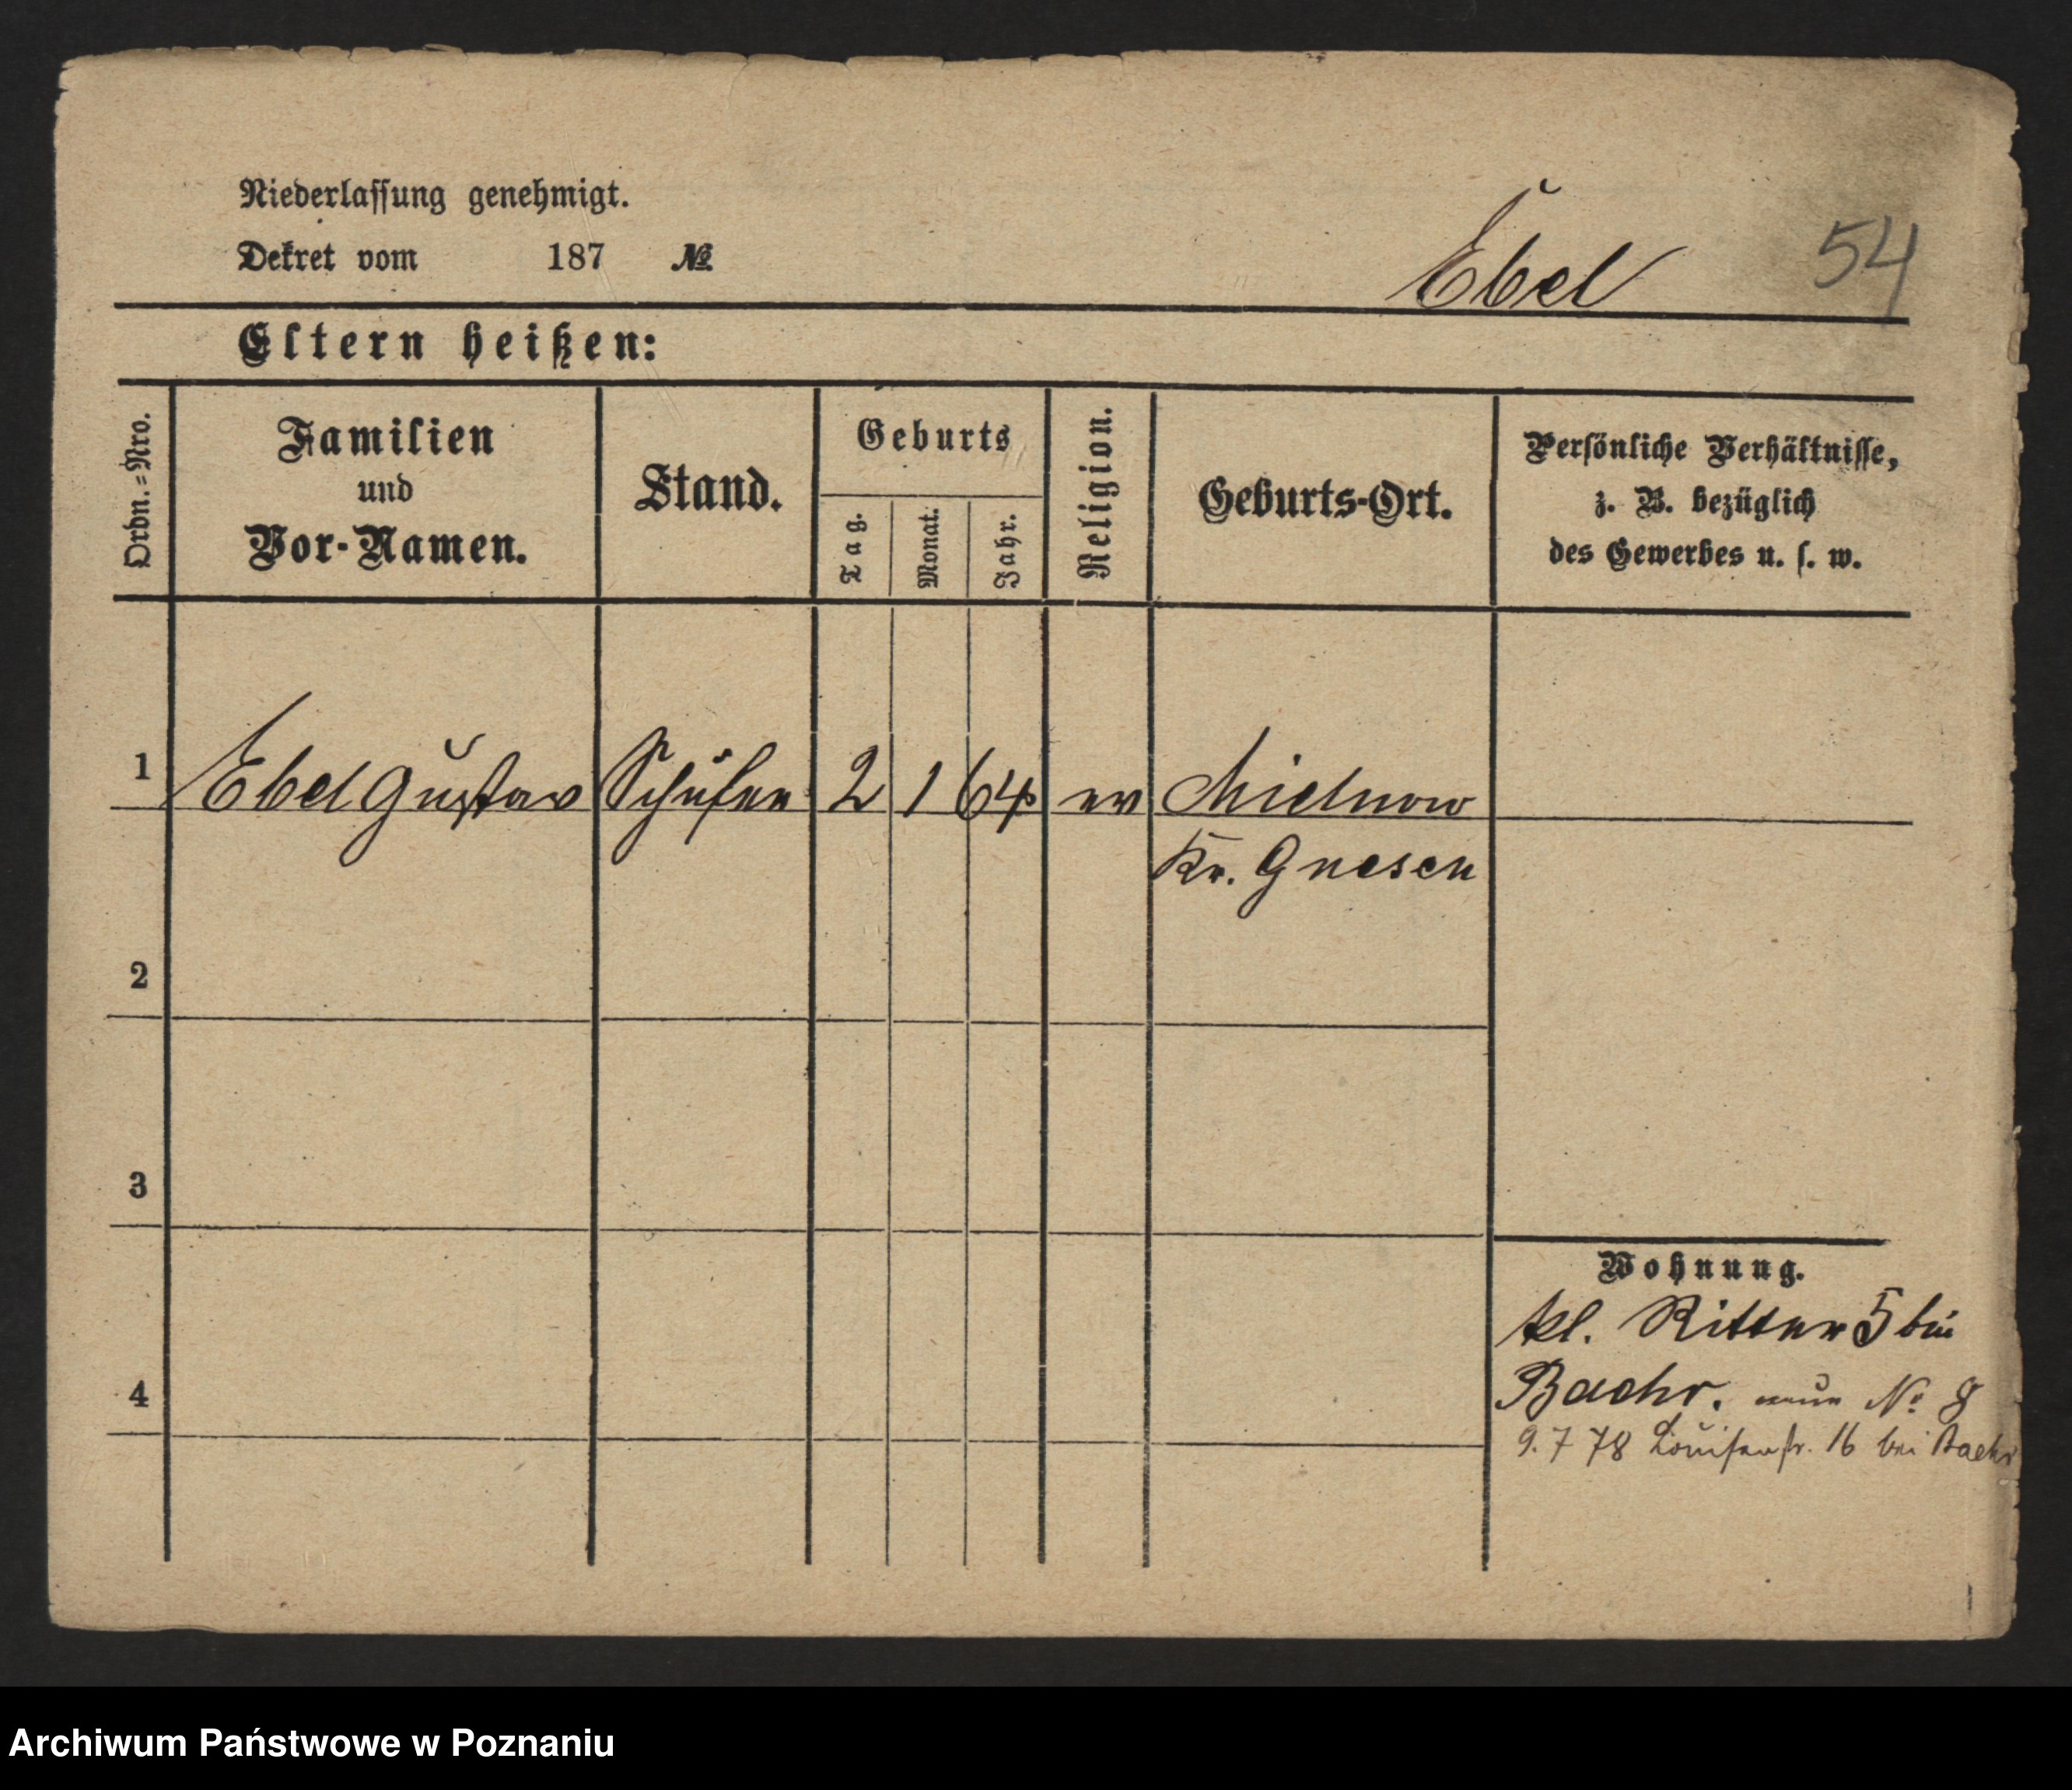 Niederlassung genehmigt.
Dekret vom 187 №
Ebel 54
Eltern heißen:
Ordn.=Nro.
Familien
und
Vor-Namen.
Stand.
Geburts
Tag.
Monat.
Jahr.
Religion.
Geburts-Ort.
Persönliche Verhältnisse,
z. B. bezüglich
des Gewerbes u. s. w.
1 Ebel Gustav Schüler 2 1 64 ev Mielnow
Kr. Gnesen
2
3
4
Wohnung.
kl. Ritter 5 bei
Baehr. neue No 8
9.7 78 Louisenstr. 16 bei Baehr
Archiwum Państwowe w Poznaniu